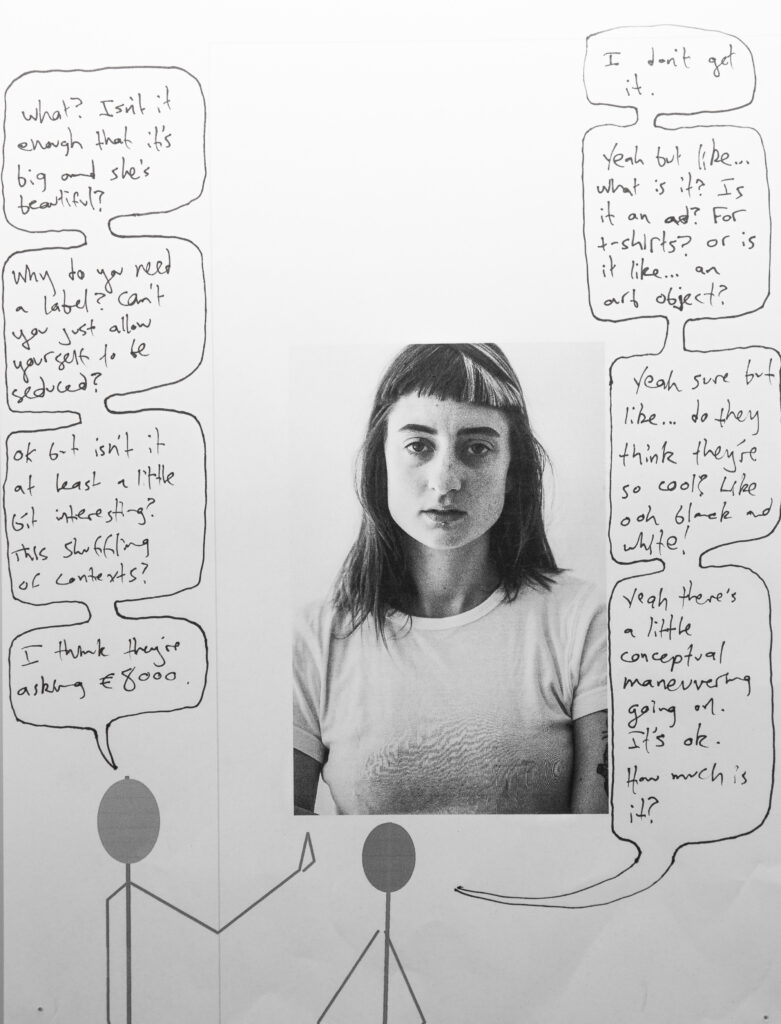 I don't get
it.
what? Isn't it
enough that it's
big and she's
beautiful?
Yeah but like...
what is it? Is
it an ad? For
t-shirts? or is
it like... an
art object?
Why do you need
a label? Can't
you just allow
yourself to be
seduced?
Yeah sure but
like... do they
think they're
so cool? Like
ooh black and
white!
ok but isn't it
at least a little
bit interesting?
This shuffling
of contexts?
Yeah there's
a little
conceptual
maneuvering
going on.
It's ok.
How much is
it?
I think they're
asking €8000.